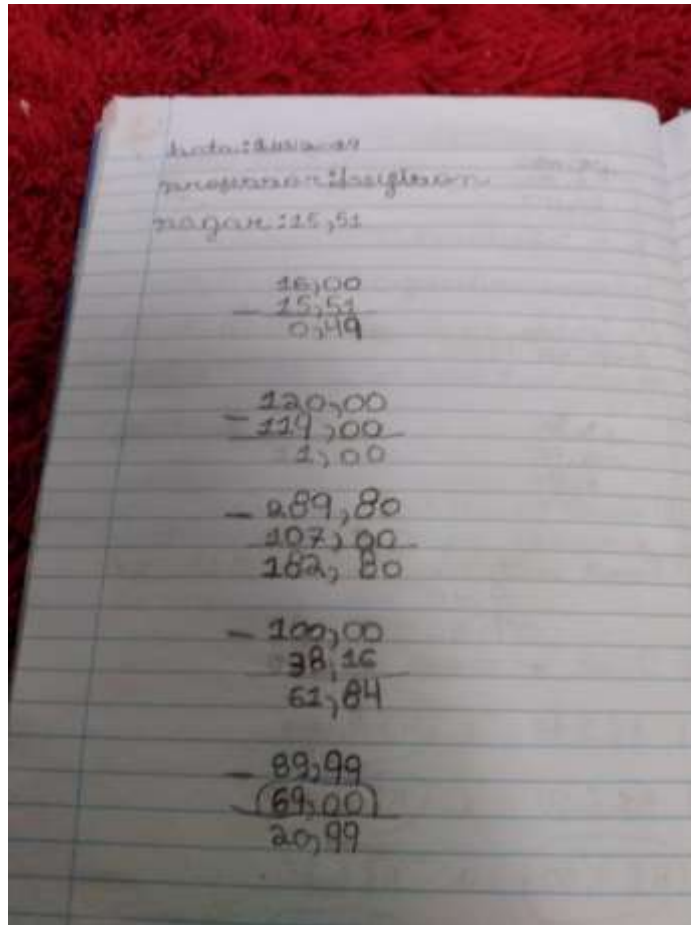 professor:
pagar:15,51
16,00
- 15,51
0,49
- 120,00
119,00
1,00
- 289,80
107,00
182, 80
- 100,00
38,16
61,84
- 89,99
(69,00)
20,99